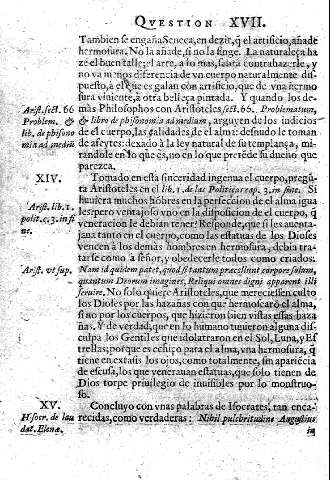 QVESTION XVII.
Tambien se engaña Seneca, en dezir, q̃ el artificio, añade
hermosura. No la añade, si no la finge. La naturaleza ha
ze el buen talle; el arte, a lo mas, sabrá contrahazerle, y
no va menos diferencia de vn cuerpo naturalmente dis-
puesto, à el que es galan con artificio, que de vna hermo
sura viuiente, à otra belleza pintada. Y quando los de-
Arist. sect. 66
Problem. &
lib. de phisono
mia ad mediũ
màs Philosophos con Aristoteles, sect. 66. Problematum,
& libro de phisonomia ad medium, arguyen de los indicios
de el cuerpo, las calidades de el alma: desnudo le toman
de afeytes: dexado à la ley natural de su templança, mi-
randole en lo que es, no en lo que pretẽde su dueño que
parezca.
XIV.
Arist. lib. 1.
polit. c. 3. in fi
ne.
Tomado en esta sinceridad ingenua el cuerpo, pregũ
ta Aristoteles en el lib. 1. de las Politicas cap. 3. in fine. Si
huuiera muchos hõbres en la perfeccion de el alma igua
les: pero ventajoso vno en la disposicion de el cuerpo, q̃
veneracion le debian tener? Responde, que si les auenta
jasse tanto en el decoro, como las estatuas de los Dioses
vencen à los demàs hombres en hermosura, debia tra-
tarse como à señor, y obedecerle todos como criados:
Arist. vt sup.
Nam id quidem patet, quod si tantum præcellent corpore solum,
quantum Deorum imagines, Reliqui omnes digni apparent illi
seruire. No solo quiere Aristoteles, que mereciessen cul-
to los Dioses por las hazañas con que hermosearõ el alma,
si no por los cuerpos, que hizieron bien vistas essas haza-
ñas. Y de verdad, que en lo humano tuuieron alguna dis
culpa los Gentiles que idolatraron en el Sol, Luna, y Es
trellas; por que es cẽsir, o para el alma, vna hermosura, q̃
tiene en extasis los ojos, como totalmente, sin apariẽcia
de escusa, los que venerauan estatuas, que solo tienen de
Dios torpe priuilegio de inuisibles por lo monstruo-
so.
XV.
Hsocr. de lau
dat. Elenæ.
Concluyo con vnas palabras de Isocrates, tan enca-
recidas, como verdaderas: Nihil pulchritudine Augustius
in